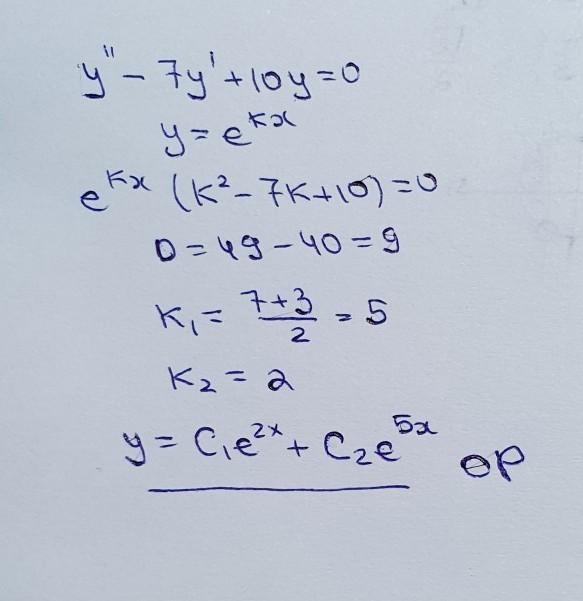 y'' - 7y' + 10y = 0
y = e^{kx}
e^{kx} (k² - 7k + 10) = 0
D = 49 - 40 = 9
k₁ = \frac{7+3}{2} = 5
k₂ = 2
y = C₁e^{2x} + C₂e^{5x} OP